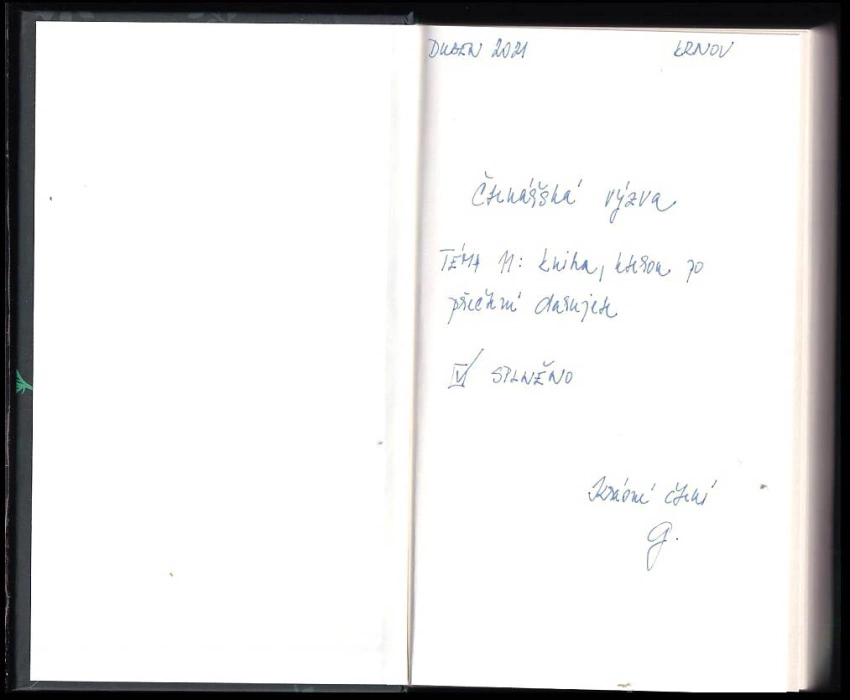 DUBEN 2021 KRNOV
Čtenářská výzva
TÉMA 11: kniha, kterou po
přečtení darujete
SPLNĚNO
Krásné čtení
G.